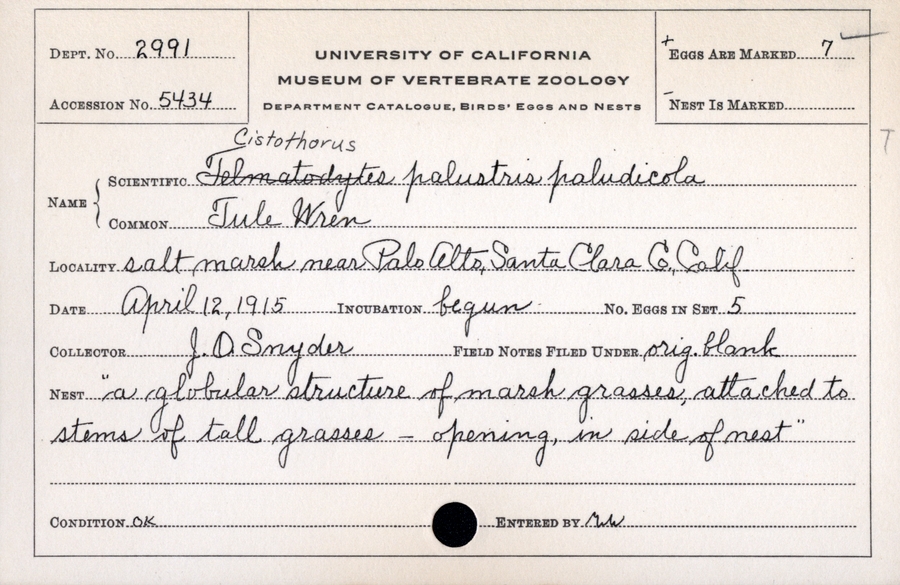 DEPT. No. 2991
ACCESSION No. 5434
UNIVERSITY OF CALIFORNIA
MUSEUM OF VERTEBRATE ZOOLOGY
DEPARTMENT CATALOGUE, BIRDS' EGGS AND NESTS
+ EGGS ARE MARKED 7
- NEST IS MARKED
T
Cistothorus
NAME
SCIENTIFIC Telmatodytes palustris paludicola
COMMON Tule Wren
LOCALITY salt marsh near Palo Alto, Santa Clara Co., Calif
DATE April 12, 1915 INCUBATION begun No. EGGS IN SET 5
COLLECTOR J. O. Snyder FIELD NOTES FILED UNDER orig. blank
NEST "a globular structure of marsh grasses, attached to
stems of tall grasses – opening, in side of nest"
CONDITION OK ENTERED BY